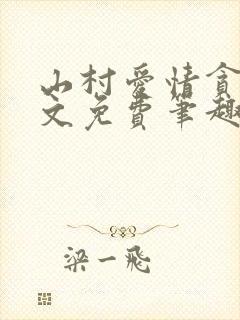 山村爱情贪
文免费笔趣
梁一飛